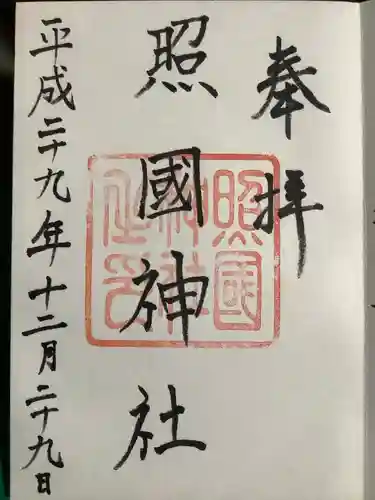 奉拝
照國神社
平成二十九年十二月二十九日
照國
神社